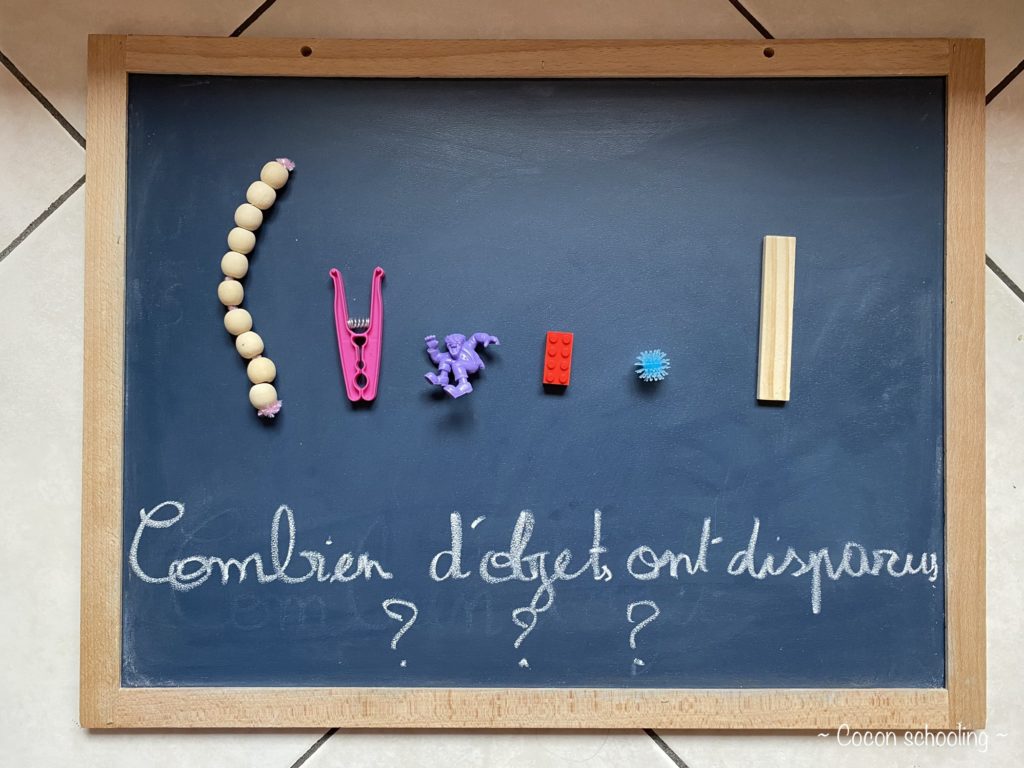 Combien d'objets ont disparus
? ? ?
~ Cocon schooling ~